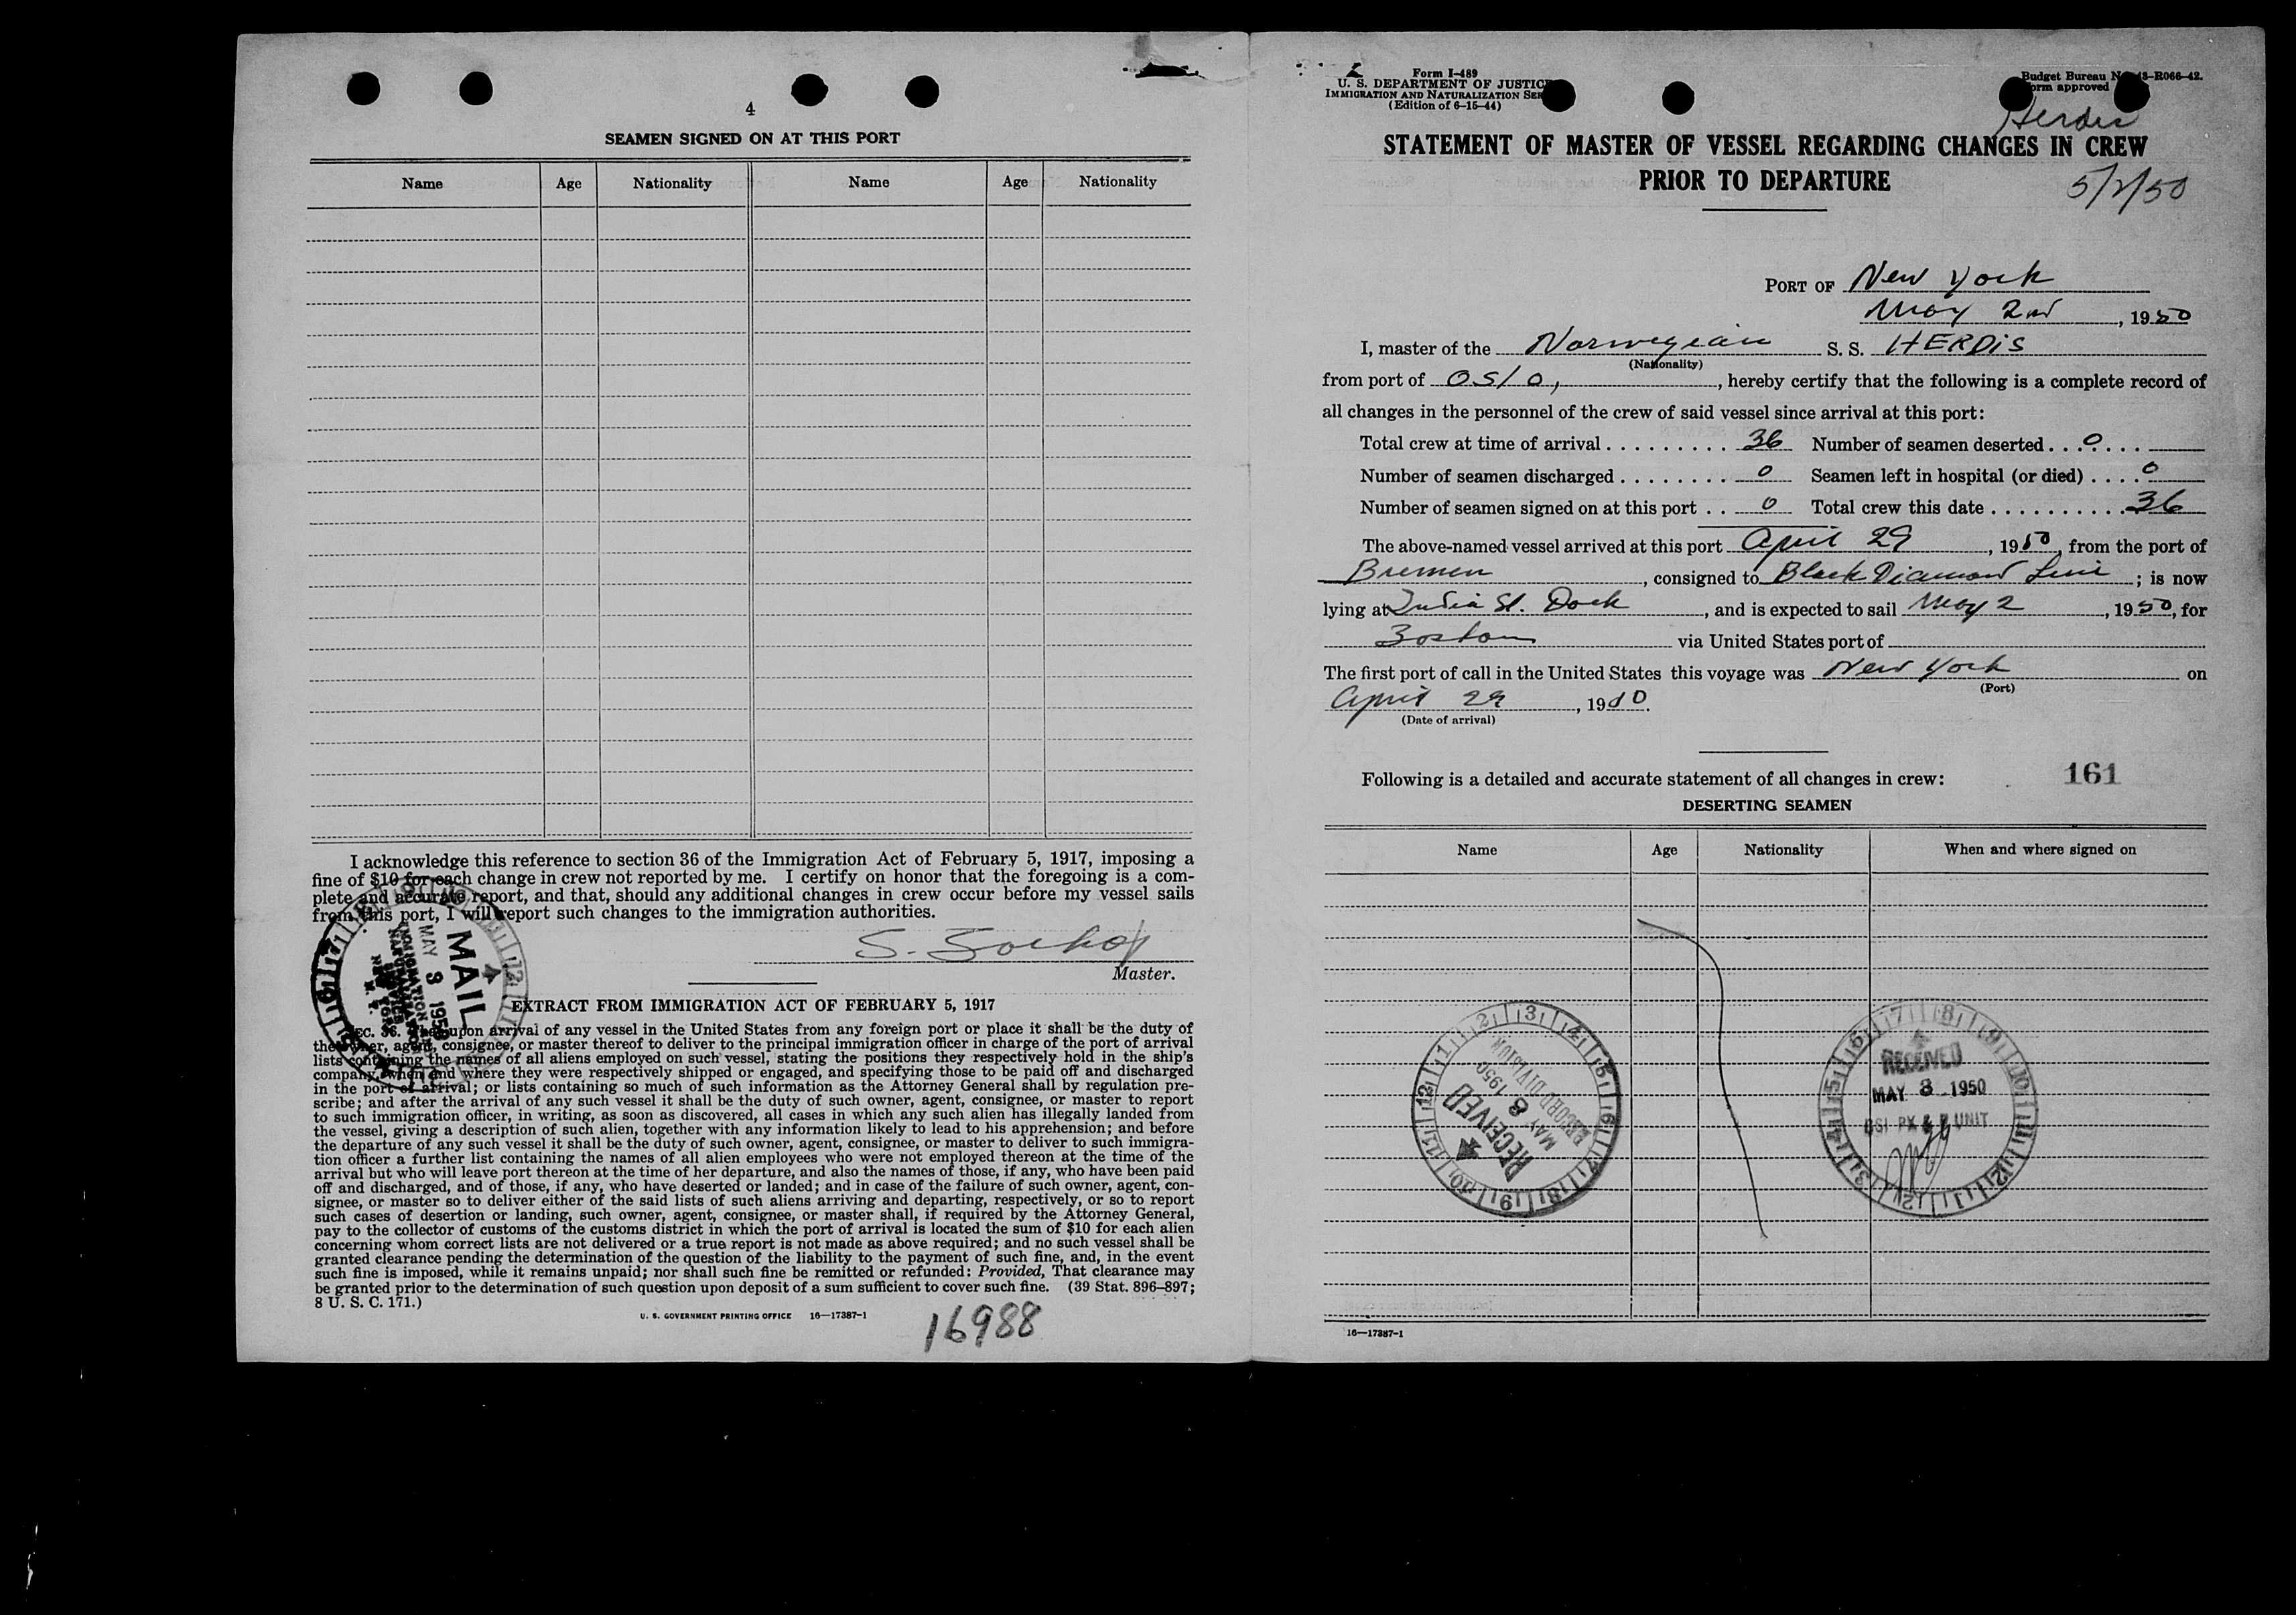 4
SEAMEN SIGNED ON AT THIS PORT
Name Age Nationality Name Age Nationality
I acknowledge this reference to section 36 of the Immigration Act of February 5, 1917, imposing a
fine of $10 for each change in crew not reported by me. I certify on honor that the foregoing is a com-
plete and accurate report, and that, should any additional changes in crew occur before my vessel sails
from this port, I will report such changes to the immigration authorities.
S.
Master.
MAIL
MAY 8 1950
IMMIGRATION AND
NATURALIZATION
SERVICE
NEW YORK
N. Y.
EXTRACT FROM IMMIGRATION ACT OF FEBRUARY 5, 1917
SEC. 36. That upon arrival of any vessel in the United States from any foreign port or place it shall be the duty of
the owner, agent, consignee, or master thereof to deliver to the principal immigration officer in charge of the port of arrival
lists containing the names of all aliens employed on such vessel, stating the positions they respectively hold in the ship's
company, when and where they were respectively shipped or engaged, and specifying those to be paid off and discharged
in the port of arrival; or lists containing so much of such information as the Attorney General shall by regulation pre-
scribe; and after the arrival of any such vessel it shall be the duty of such owner, agent, consignee, or master to report
to such immigration officer, in writing, as soon as discovered, all cases in which any such alien has illegally landed from
the vessel, giving a description of such alien, together with any information likely to lead to his apprehension; and before
the departure of any such vessel it shall be the duty of such owner, agent, consignee, or master to deliver to such immigra-
tion officer a further list containing the names of all alien employees who were not employed thereon at the time of the
arrival but who will leave port thereon at the time of her departure, and also the names of those, if any, who have been paid
off and discharged, and of those, if any, who have deserted or landed; and in case of the failure of such owner, agent, con-
signee, or master so to deliver either of the said lists of such aliens arriving and departing, respectively, or so to report
such cases of desertion or landing, such owner, agent, consignee, or master shall, if required by the Attorney General,
pay to the collector of customs of the customs district in which the port of arrival is located the sum of $10 for each alien
concerning whom correct lists are not delivered or a true report is not made as above required; and no such vessel shall be
granted clearance pending the determination of the question of the liability to the payment of such fine, and, in the event
such fine is imposed, while it remains unpaid; nor shall such fine be remitted or refunded: Provided, That clearance may
be granted prior to the determination of such question upon deposit of a sum sufficient to cover such fine. (39 Stat. 896–897;
8 U. S. C. 171.)
U. S. GOVERNMENT PRINTING OFFICE 16—17387-1
16988
Form I-489
U. S. DEPARTMENT OF JUSTICE
IMMIGRATION AND NATURALIZATION SER
(Edition of 6-15-44)
Budget Bureau N 43-R066-42.
orm approved
Herdis
STATEMENT OF MASTER OF VESSEL REGARDING CHANGES IN CREW
PRIOR TO DEPARTURE
5/2/50
PORT OF New York
May 2nd, 1950
I, master of the Norwegian S. S. HERDIS
(Nationality)
from port of Oslo, , hereby certify that the following is a complete record of
all changes in the personnel of the crew of said vessel since arrival at this port:
Total crew at time of arrival 36 Number of seamen deserted 0
Number of seamen discharged 0 Seamen left in hospital (or died) 0
Number of seamen signed on at this port 0 Total crew this date 36
The above-named vessel arrived at this port April 29, 1950, from the port of
Bremen, consigned to Black Diamond Line; is now
lying at India St. Dock, and is expected to sail May 2, 1950, for
Boston via United States port of
The first port of call in the United States this voyage was New York on
(Port)
April 29, 1950.
(Date of arrival)
Following is a detailed and accurate statement of all changes in crew: 161
DESERTING SEAMEN
Name Age Nationality When and where signed on
RECEIVED
MAY 8 1950
RECORD DIVISION
RECEIVED
MAY 8 1950
BSI PX & F UNIT
16—17387-1